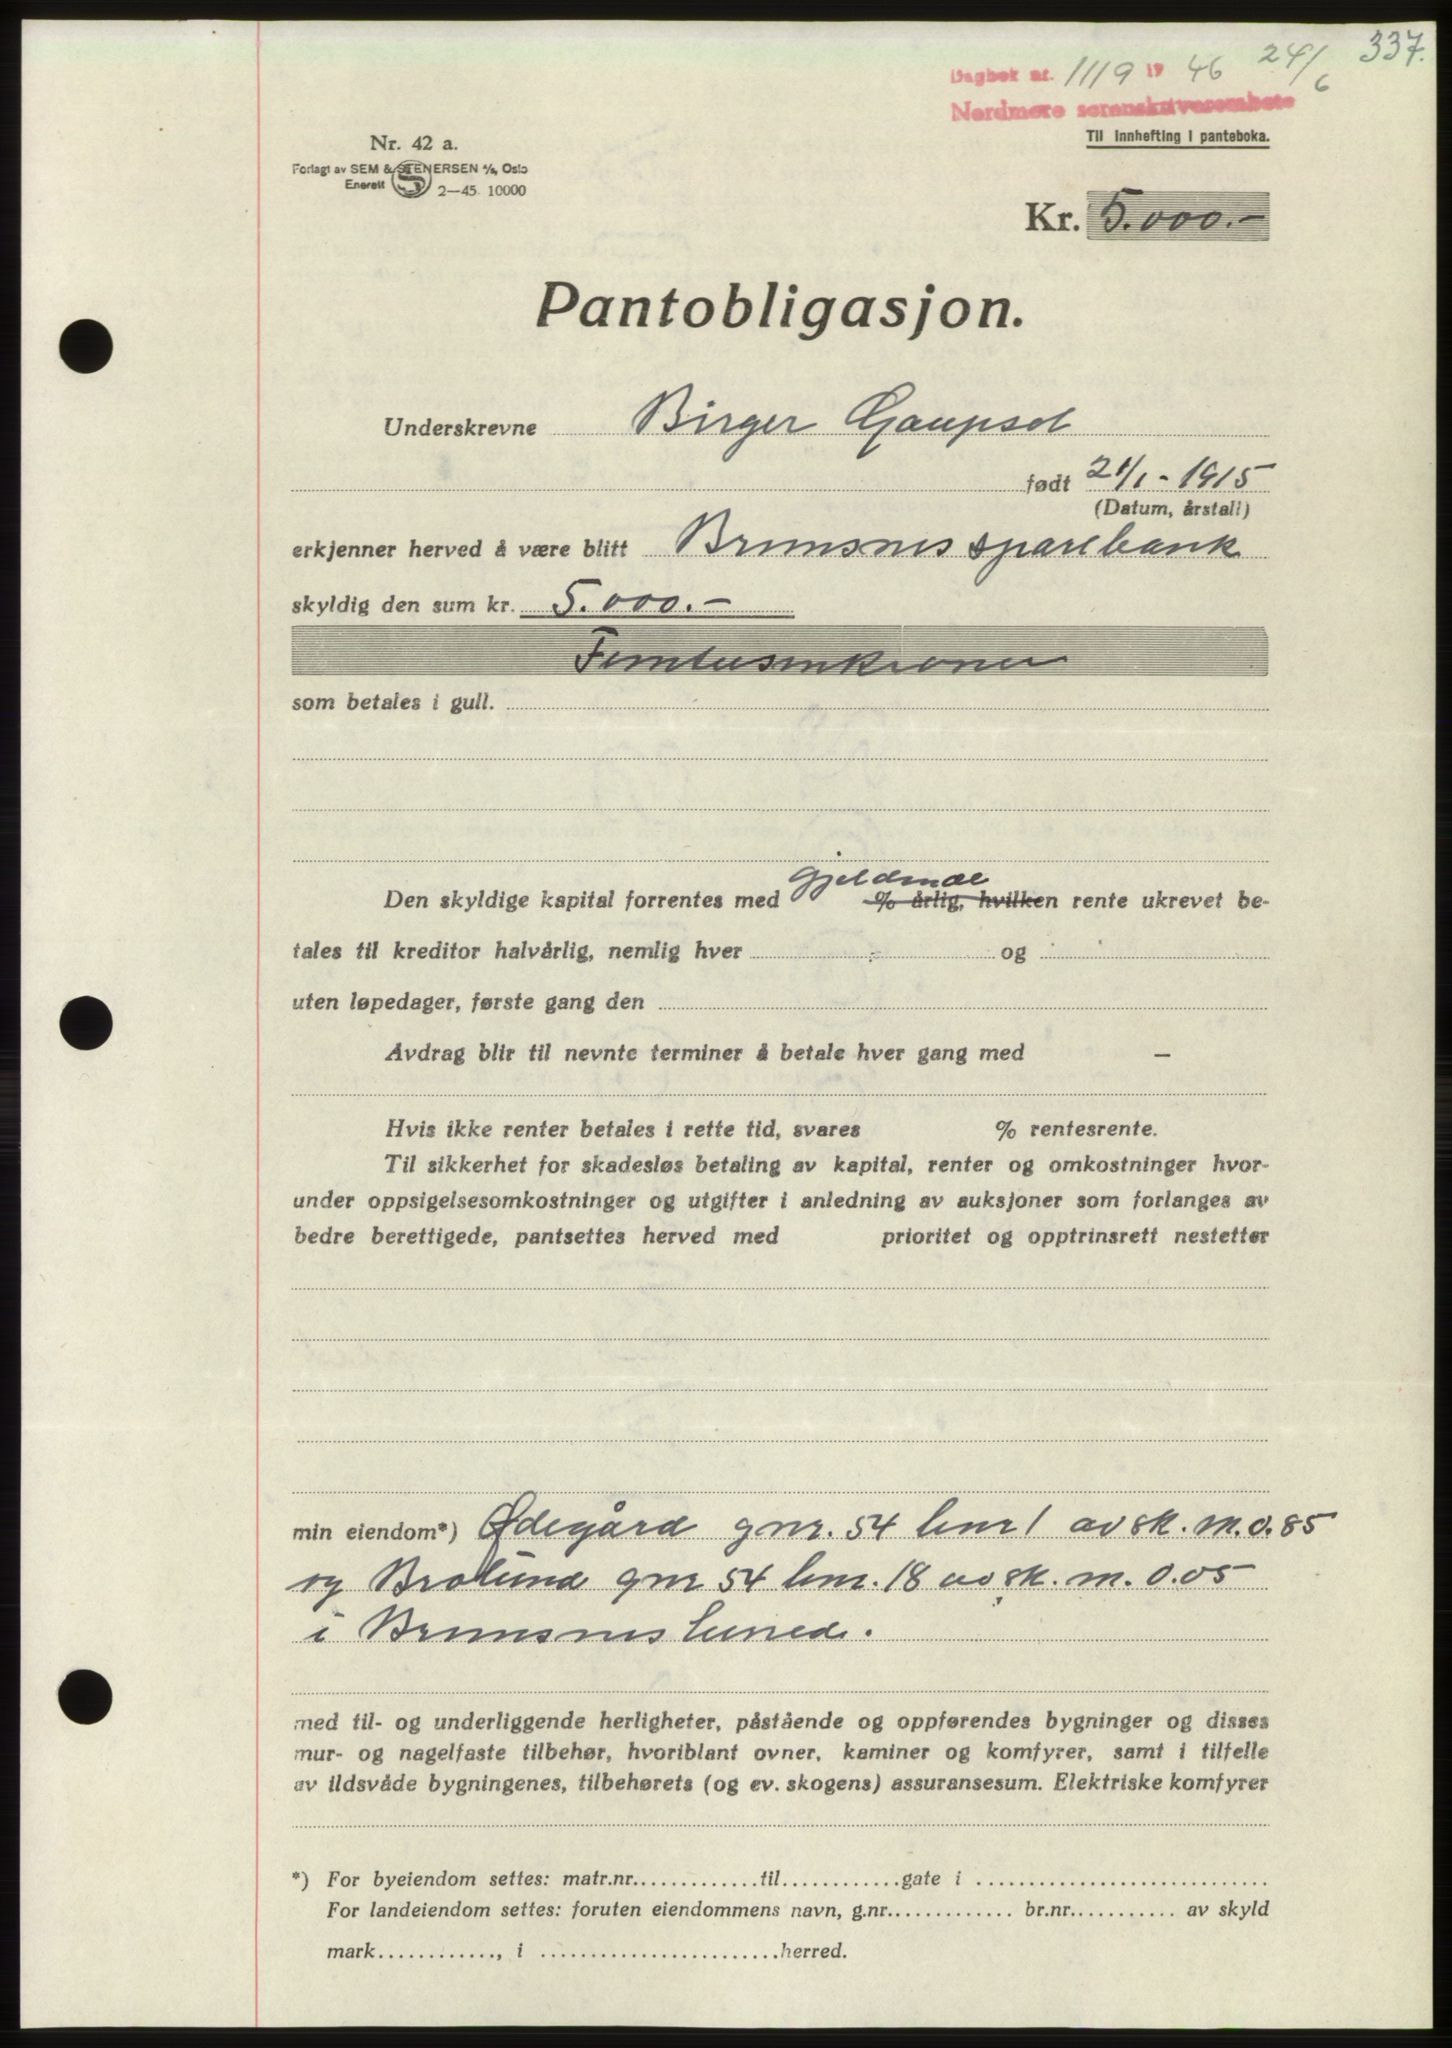 337.
Dagbok nr. 1119 19 46 24/6
Nordmøre sorenskriverembete
Til innhefting i panteboka.
Nr. 42 a.
Forlagt av SEM & STENERSEN A/S, Oslo
Enerett 2—45. 10000
Kr. 5.000.-
Pantobligasjon.
Underskrevne Birger Gaupset
født 21/1 - 1915
(Datum, årstall)
erkjenner herved å være blitt Bremsnes sparebank
skyldig den sum kr. 5.000.-
Femtusenkroner
som betales i gull.
gjeldende
Den skyldige kapital forrentes med % årlig, hvilken rente ukrevet be-
tales til kreditor halvårlig, nemlig hver - og
uten løpedager, første gang den
Avdrag blir til nevnte terminer å betale hver gang med —
Hvis ikke renter betales i rette tid, svares % rentesrente.
Til sikkerhet for skadesløs betaling av kapital, renter og omkostninger hvor-
under oppsigelsesomkostninger og utgifter i anledning av auksjoner som forlanges av
bedre berettigede, pantsettes herved med prioritet og opptrinsrett nestetter
min eiendom*) Ødegård gnr. 54 bnr 1 av sk. m. 0.85
og Brolund gnr 54 bnr. 18 av sk. m. 0.05
i Bremsnes herred.
med til- og underliggende herligheter, påstående og oppførendes bygninger og disses
mur- og nagelfaste tilbehør, hvoriblant ovner, kaminer og komfyrer, samt i tilfelle
av ildsvåde bygningenes, tilbehørets (og ev. skogens) assuransesum. Elektriske komfyrer
*) For byeiendom settes: matr.nr.............til............gate i ..............................
For landeiendom settes: foruten eiendommens navn, g.nr............. br.nr........... av skyld
mark............, i ........................herred.